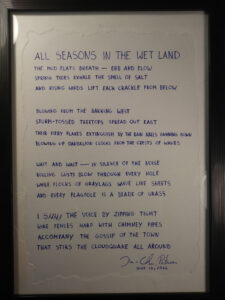 ALL SEASONS IN THE WET LAND
THE MUD FLATS BREATH — EBB AND FLOW
SPRING TIDES EXHALE THE SMELL OF SALT
AND RISING WINDS LIFT EACH CRACKLE FROM BELOW
BLOWING FROM THE BARKING WEST
STORM-TOSSED TREETOPS SPREAD OUT EAST
THEIR FIERY FLAMES EXTINGUISH BY THE RAIN HAILS HAMMING DOWN
BLOWING UP DANDELION CLOCKS FROM THE CRESTS OF WAVES
WAIT AND WAIT — IN SILENCE OF THE NOISE
ROLLING GUSTS BLOW THROUGH EVERY HOLE
WHILE FLOCKS OF GRAYLAGS WAVE LIKE SHEETS
AND EVERY FLAGPOLE IS A BLADE OF GRASS
I THE VOICE BY ZIPPING TIGHT
WIRE FENCES HARD WITH CHIMNEY PIPES
ACCOMPANY THE GOSSIP OF THE TOWN
THAT STIRS THE CLOUDSQUARE ALL AROUND